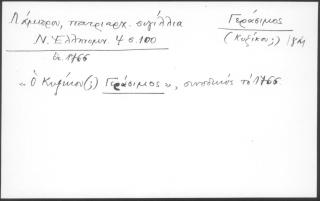 Λάμπρου, πατριαρχ. σιγίλλια
Ν. Ἑλληνομν. 4 σ. 100
ἔτ. 1766
Γεράσιμος
(Κυζίκου;)
« ὁ Κυζίκου (;) Γεράσιμος », συνοδικὸς τὸ 1766